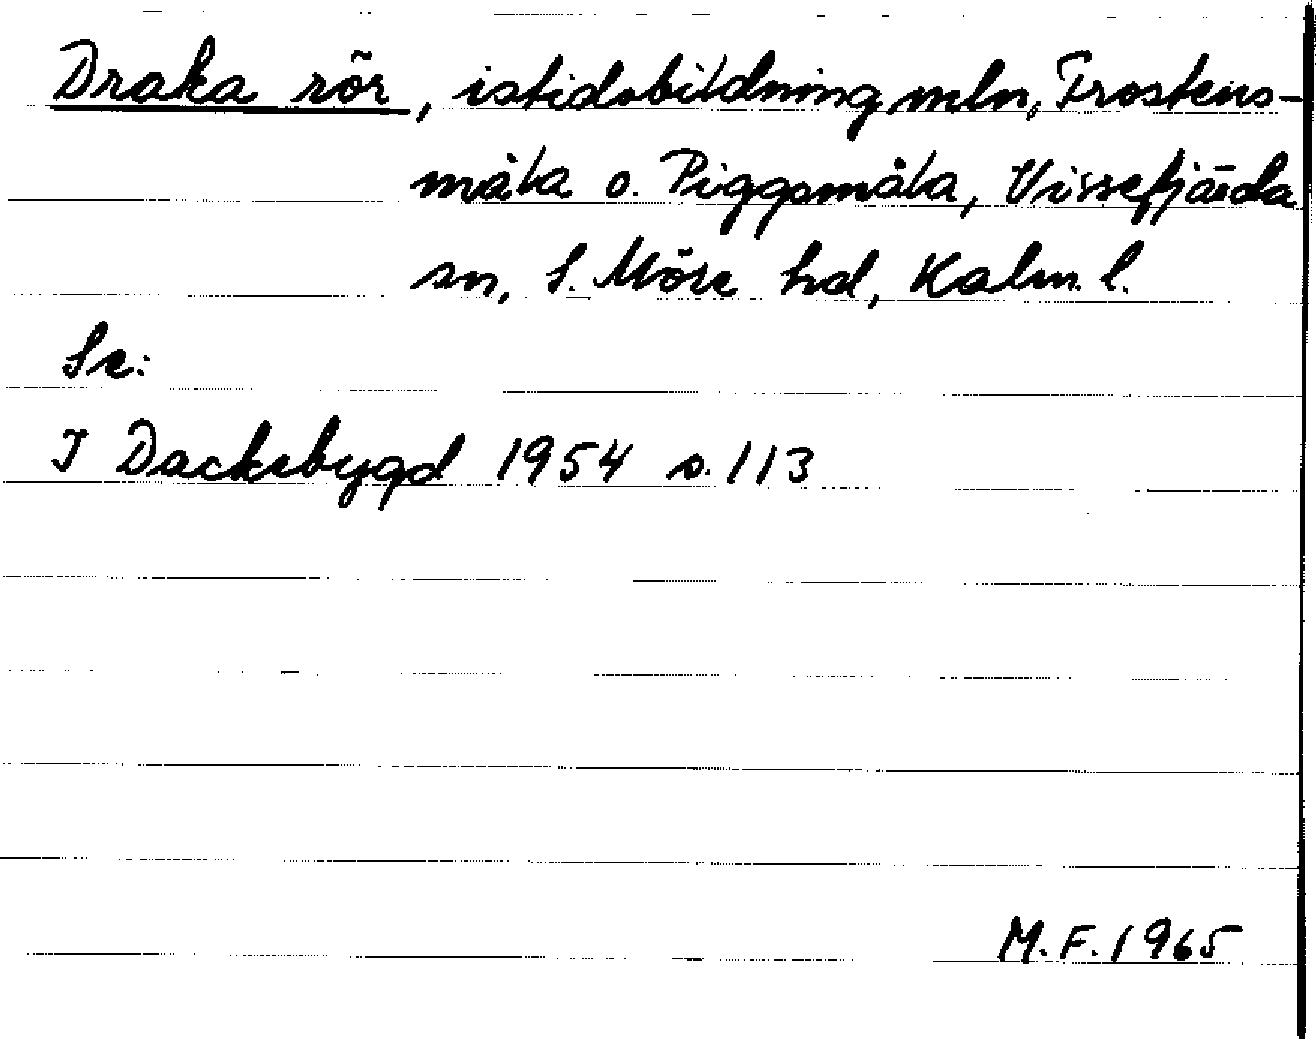 Draka rör, istidsbildning mln, Trostens-
måla o. Piggsmåla, Vissefjärda
sn, S. Möre hd, Kalm. l.
Se:
I Dackebygd 1954 s. 113
M.F. 1965